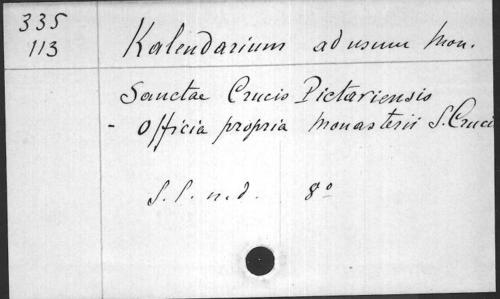 335
113
Kalendarium ad usum Mon.
Sanctae Crucis Pictaviensis
- Officia propria Monasterii S. Cruci
S. l. n. d. 8º